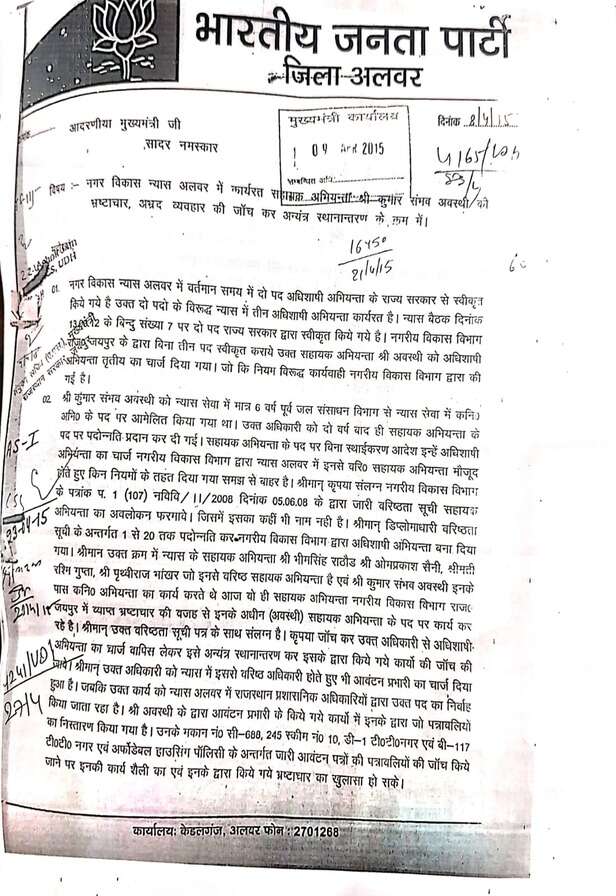 भारतीय जनता पार्टी
जिला-अलवर
आदरणीया मुख्यमंत्री जी
सादर नमस्कार
मुख्यमंत्री कार्यालय
09 APR 2015
दिनांक 8/4/15
विषय :- नगर विकास न्यास अलवर में कार्यरत सहायक अभियन्ता श्री कुमार संभव अवस्थी को
भ्रष्टाचार, अभ्रद व्यवहार की जॉच कर अन्यंत्र स्थानान्तरण के क्रम में।
16450
21/4/15
01. नगर विकास न्यास अलवर में वर्तमान समय में दो पद अधिशाषी अभियन्ता के राज्य सरकार से स्वीकृत
किये गये है उक्त दो पदो के विरूद्ध न्यास में तीन अधिशाषी अभियन्ता कार्यरत है। न्यास बैठक दिनांक
के बिन्दु संख्या 7 पर दो पद राज्य सरकार द्वारा स्वीकृत किये गये है। नगरीय विकास विभाग
जयपुर के द्वारा बिना तीन पद स्वीकृत कराये उक्त सहायक अभियन्ता श्री अवस्थी को अधिशाषी
अभियन्ता तृतीय का चार्ज दिया गया। जो कि नियम विरूद्ध कार्यवाही नगरीय विकास विभाग द्वारा की
गई है।
02 श्री कुमार संभव अवस्थी को न्यास सेवा में मात्र 6 वर्ष पूर्व जल संसाधन विभाग से न्यास सेवा में कनि०
अभि० के पद पर आमेलित किया गया था। उक्त अधिकारी को दो वर्ष बाद ही सहायक अभियन्ता के
पद पर पदोन्नति प्रदान कर दी गई। सहायक अभियन्ता के पद पर बिना स्थाईकरण आदेश इन्हें अधिशाषी
अभियन्ता का चार्ज नगरीय विकास विभाग द्वारा न्यास अलवर में इनसे वरि० सहायक अभियन्ता मौजूद
होते हुए किन नियमों के तहत दिया गया समझ से बाहर है। श्रीमान् कृपया संलग्न नगरीय विकास विभाग
के पत्रांक प. 1 (107) नविवि/11/2008 दिनांक 05.06.08 के द्वारा जारी वरिष्ठता सूची सहायक
अभियन्ता का अवलोकन फरमाये। जिसमें इसका कहीं भी नाम नही है। श्रीगान् डिप्लोमाधारी वरिष्ठता
सूची के अन्तर्गत 1 से 20 तक पदोन्नति कर नगरीय विकास विभाग द्वारा अधिशाषी अभियन्ता बना दिया
गया। श्रीमान उक्त क्रम में न्यास के सहायक अभियन्ता श्री भीगसिंह राठौड श्री ओगप्रकाश सैनी, श्रीमती
रश्मि गुप्ता, श्री पृथ्वीराज भांखर जो इनसे वरिष्ठ सहायक अभियन्ता है एवं श्री कुमार संभव अवस्थी इनके
पास कनि० अभियन्ता का कार्य करते थे आज यो ही सहायक अभियन्ता नगरीय विकास विभाग राज०
जयपुर में व्याप्त भ्रष्टाचार की वजह से इनके अधीन (अवस्थी) सहायक अभियन्ता के पद पर कार्य कर
रहे है। श्रीमान् उक्त वरिष्ठता सूची पत्र के साथ संलग्न है। कृपया जॉच कर उक्त अधिकारी से अधिशाषी
अभियन्ता का चार्ज वापिस लेकर इसे अन्यंत्र स्थानान्तरण कर इसके द्वारा किये गये कार्यो की जॉच की
जाये। श्रीगान् उक्त अधिकारी को न्यास में इससे वरिष्ठ अधिकारी होते हुए भी आवंटन प्रभारी का चार्ज दिया
हुआ है। जबकि उक्त कार्य को न्यास अलवर में राजस्थान प्रशासनिक अधिकारियों द्वारा उक्त पद का निर्वाह
किया जाता रहा है। श्री अवस्थी के द्वारा आवंटन प्रभारी के किये गये कार्यो में इनके द्वारा जो पत्रावलियों
का निस्तारण किया गया है। उनके गकान नं० सी-688, 245 स्कीम नं० 10, डी-1 टी०टी०नगर एवं बी-117
टी०टी० नगर एवं अर्फोडेबल हाउसिंग पॉलिसी के अन्तर्गत जारी आवंटन पत्रों की पत्रावलियों की जॉच किये
जाने पर इनकी कार्य शैली का एवं इनके द्वारा किये गये भ्रष्टाधार का खुलासा हो सके।
कार्यालय: केडलगंज, अलवर फोन : 2701268